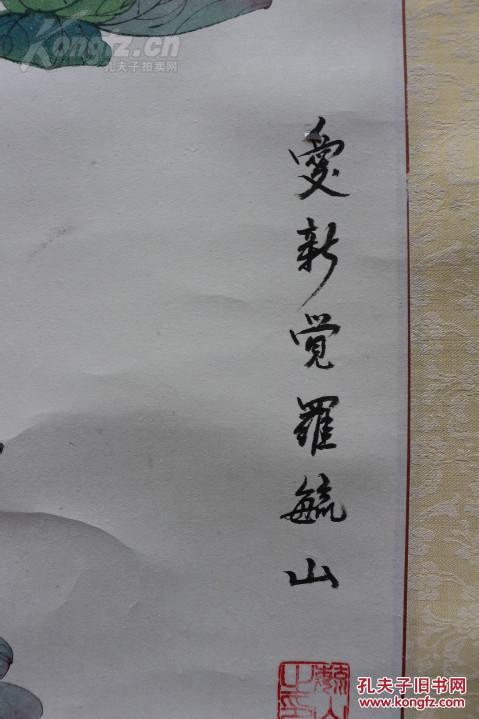 Kongfz.cn
孔夫子拍卖网
愛新覺羅毓山
毓山之印
孔夫子旧书网
www.kongfz.com